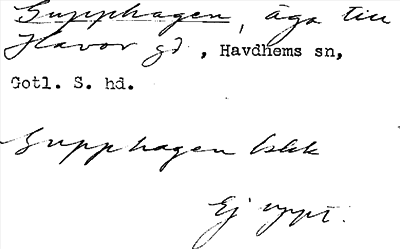 Gupphagen, äga till
Havor gd, Havdhems sn,
Gotl. S. hd.
Gupphagen
Ej uppt.